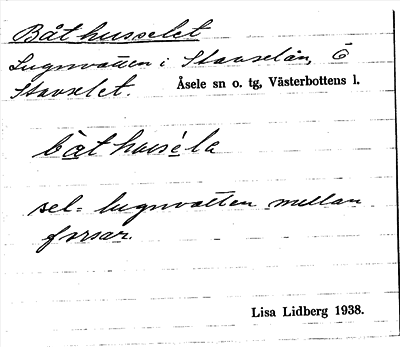 Båthusselet
Lugnvatten i Stavselån, Ö
Stavselet. Åsele sn o. tg, Västerbottens l.
båthusé la
sel = lugnvatten mellan
forsar.
Lisa Lidberg 1938.